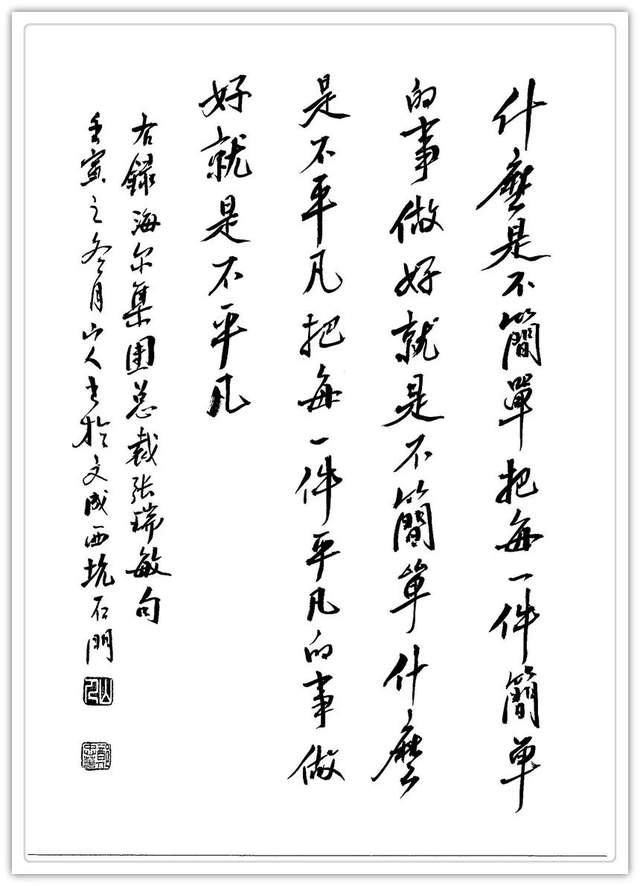 什麼是不簡單把每一件簡单
的事做好就是不簡单什麼
是不平凡把每一件平凡的事做
好就是不平凡
右録海尔集團总裁张瑞敏句
壬寅之冬月山人书於文成西坑石門
山人